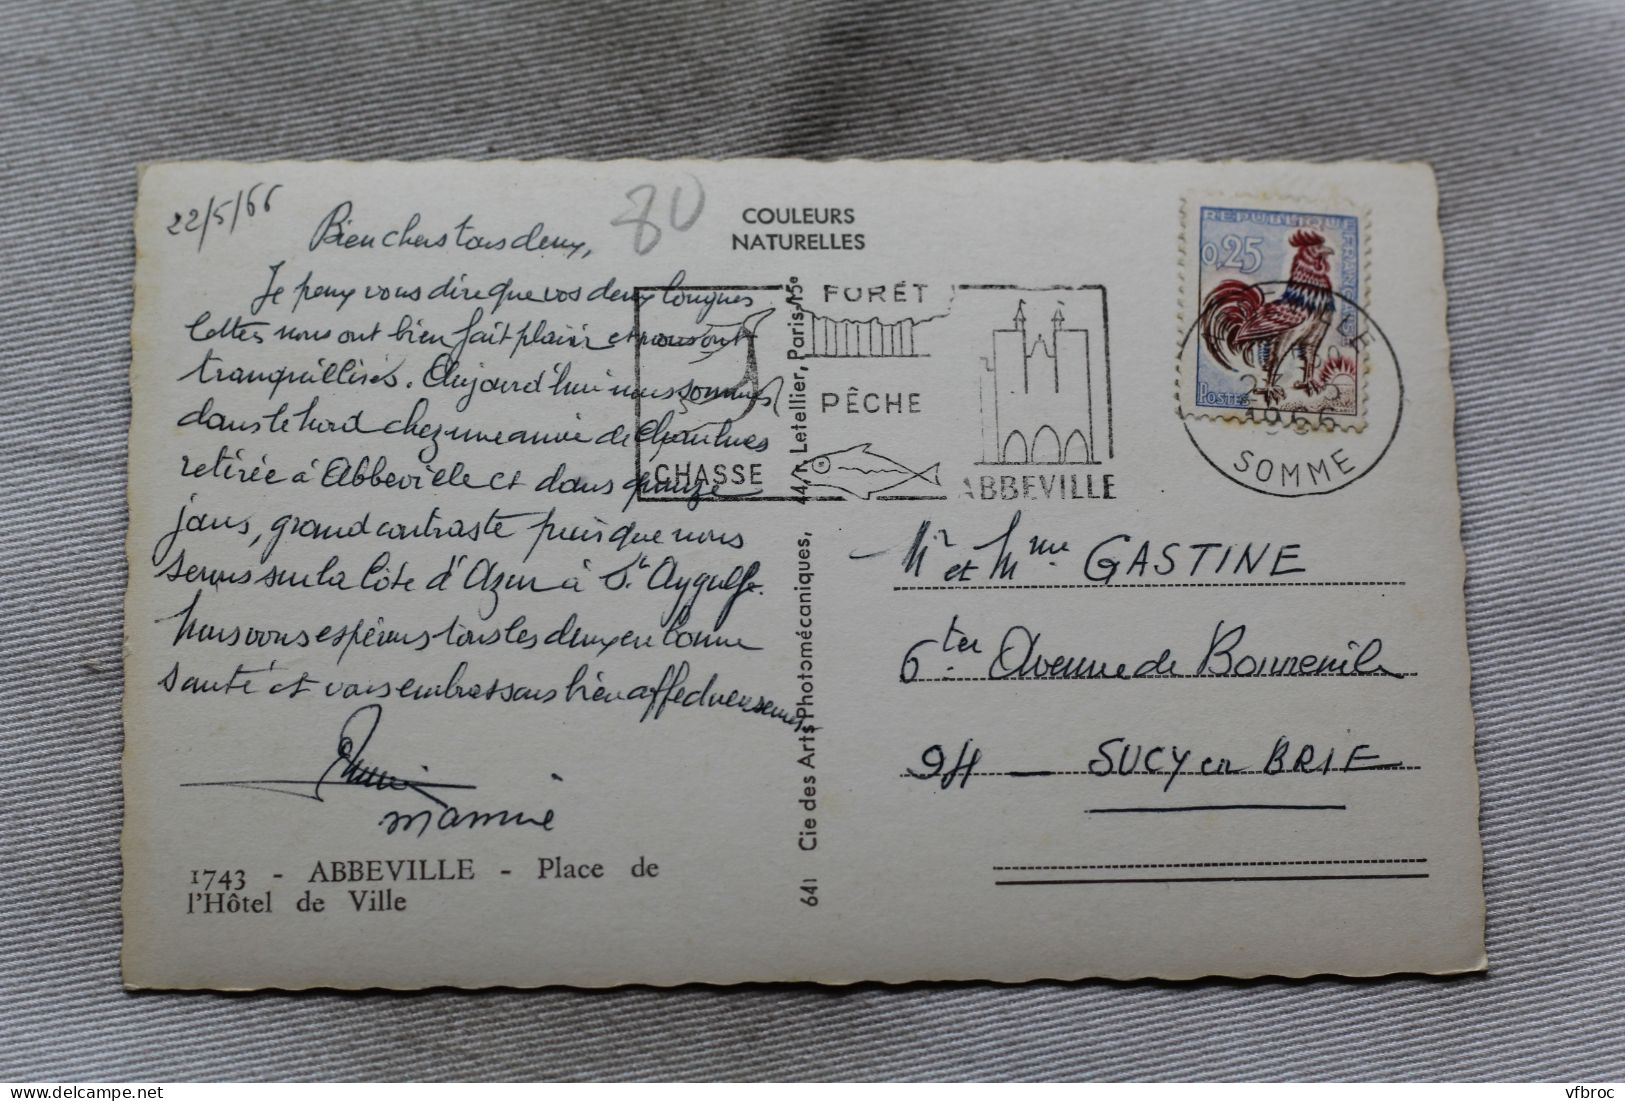 22/5/66
80
Bien chers tous deux,
Je peux vous dire que vos deux longues
lettres nous ont bien fait plaisir et nous ont
tranquillisés. Aujourd'hui nous sommes
dans le Nord chez une amie de
retirée à Abbeville et dans quinze
jours, grand contraste puisque nous
serons sur la Côte d'Azur à St Aygulf.
Nous vous espérons tous les deux en bonne
santé et vous embrassons bien affectueusement
mamie
1743 - ABBEVILLE - Place de
l'Hôtel de Ville
COULEURS
NATURELLES
641 Cie des Arts Photomécaniques, 44, r. Letellier, Paris-15e
FORÊT
PÊCHE
CHASSE
ABBEVILLE
REPUBLIQUE FRANÇAISE
0,25
POSTES
1966
SOMME
Mr et Mme GASTINE
6 ter Avenue de Bonneuil
94 - SUCY en BRIE
vfbroc